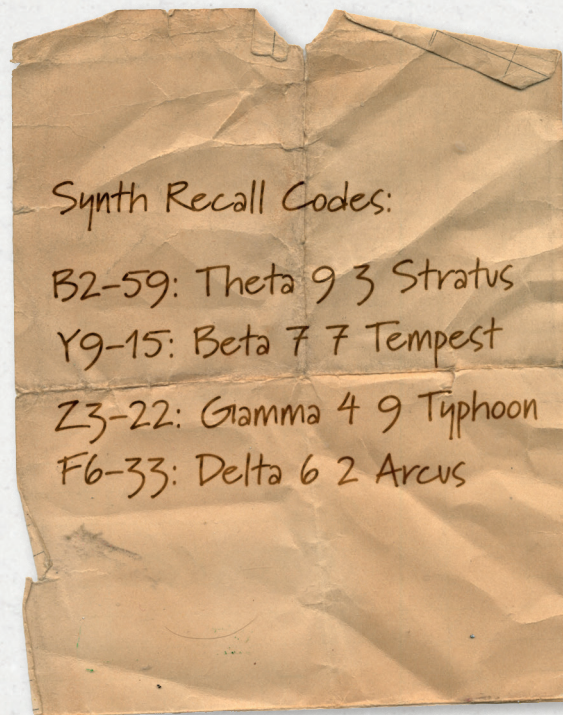 Synth Recall Codes:
B2-59: Theta 9 3 Stratus
Y9-15: Beta 7 7 Tempest
Z3-22: Gamma 4 9 Typhoon
F6-33: Delta 6 2 Arcus